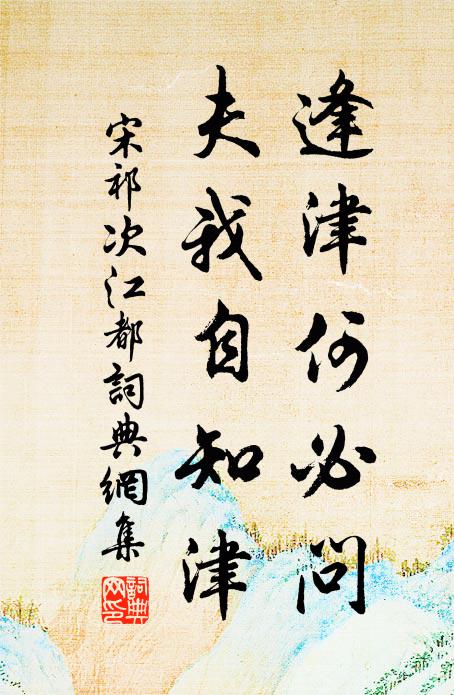 逢津何必问
夫我自知津
宋祁次江都詞典網集
詞典网印